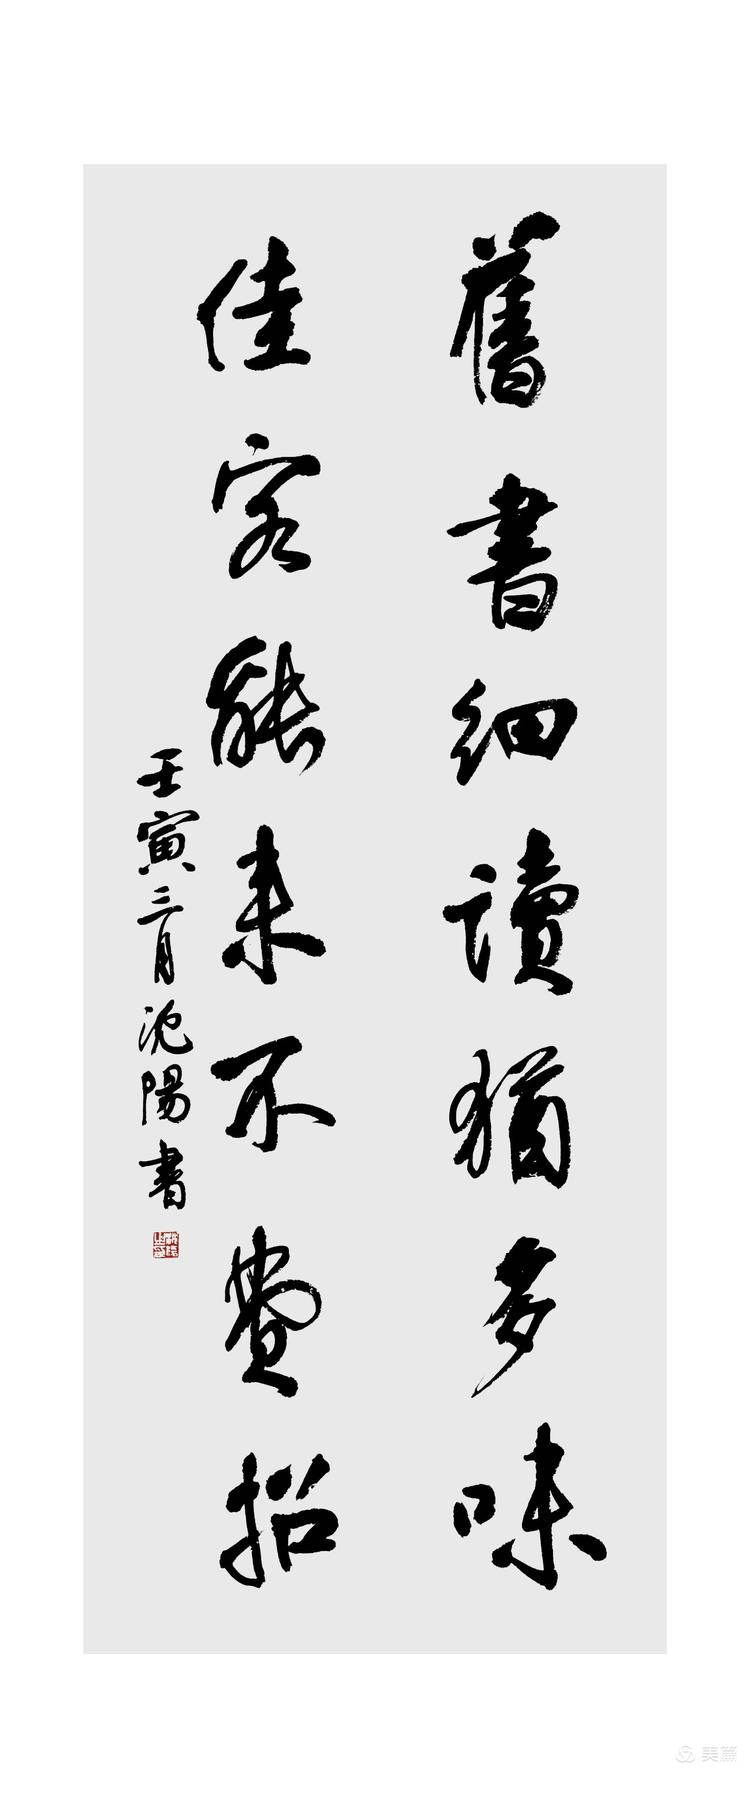 舊書細讀猶多味
佳客能來不費招
壬寅三月沈陽書
美篇